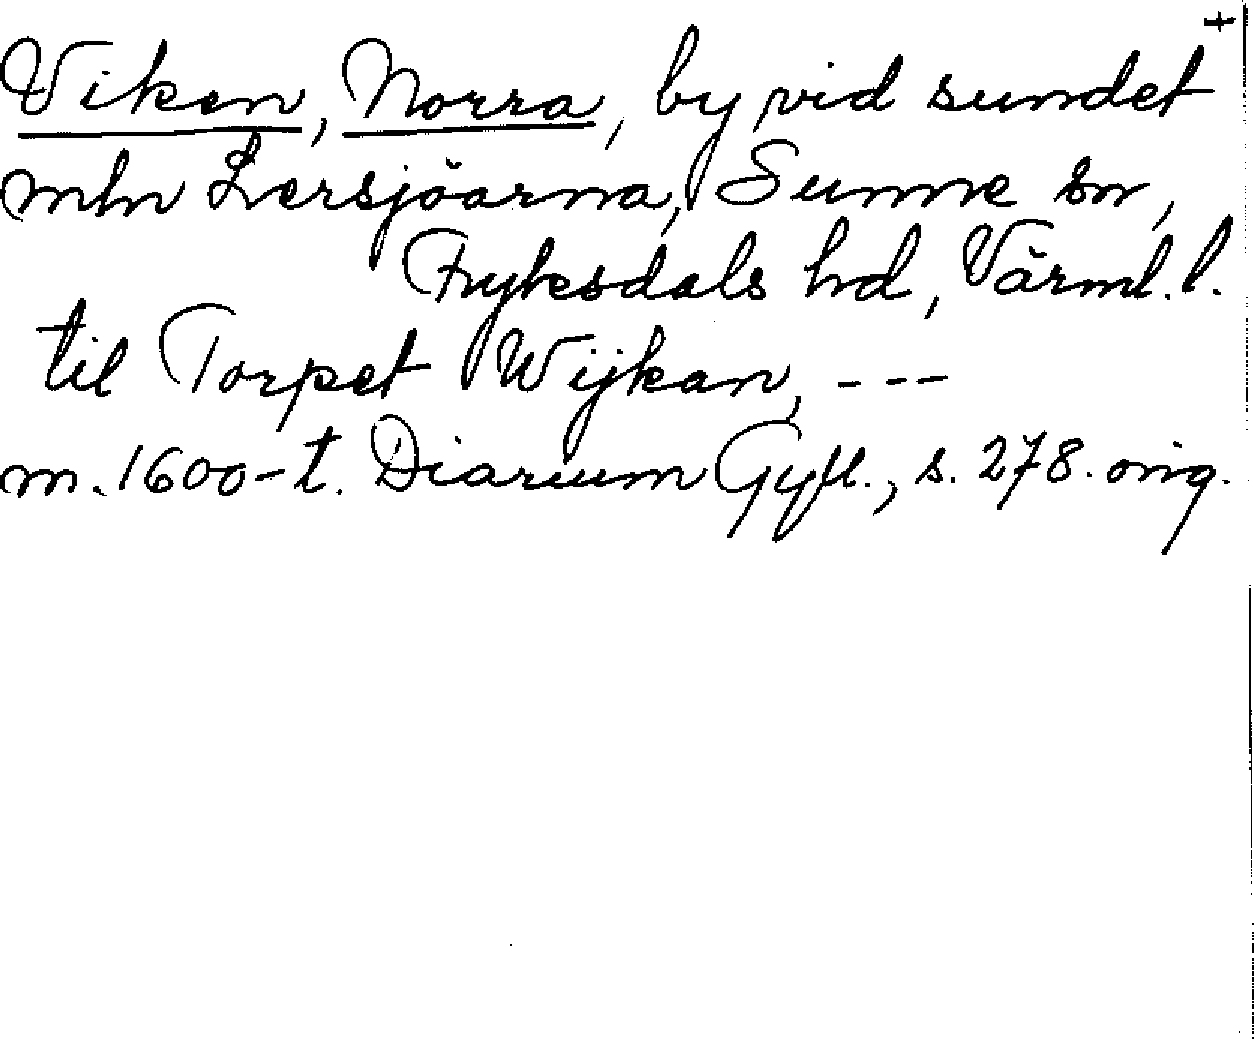 +
Viken, Norra, by vid sundet
mln Lersjöarna, Sunne sn,
Fryksdals hd, Värml. l.
til Torpet Wijkan, ---
m. 1600-t. Diarium Gyll., s. 278. orig.